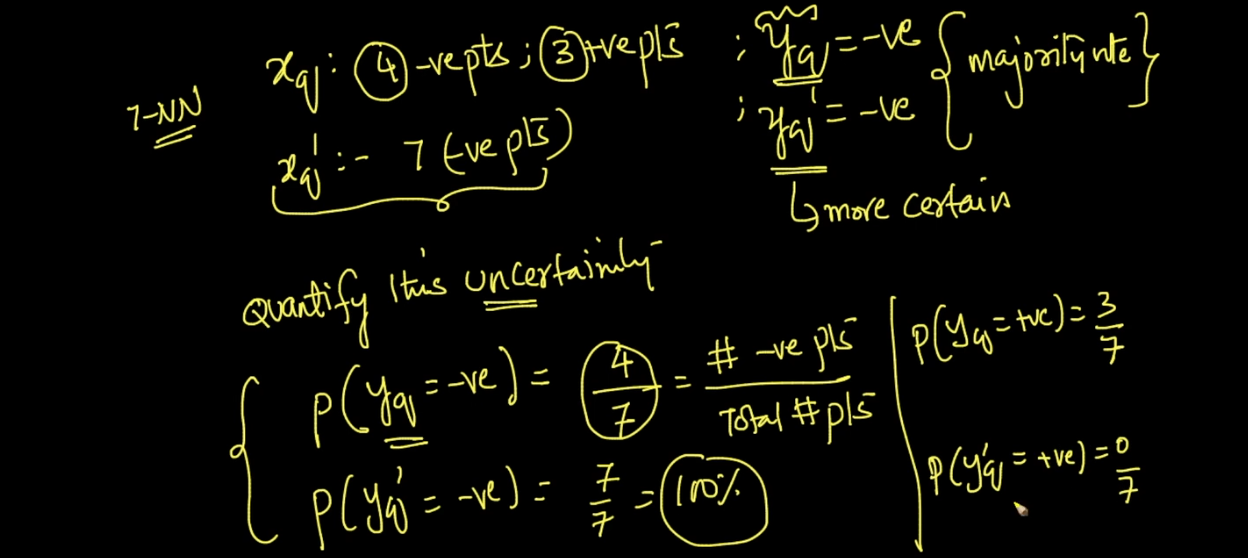 x_q : 4 -ve pts ; 3 +ve pts ; y_q = -ve { majority vote }
7-NN
x_q' :- 7 (-ve pts) ; y_q' = -ve
↳ more certain
Quantify this uncertainty
P(y_q = -ve) = 4/7 = # -ve pts / Total # pts
P(y_q = +ve) = 3/7
P(y_q' = -ve) = 7/7 = 100%
P(y_q' = +ve) = 0/7